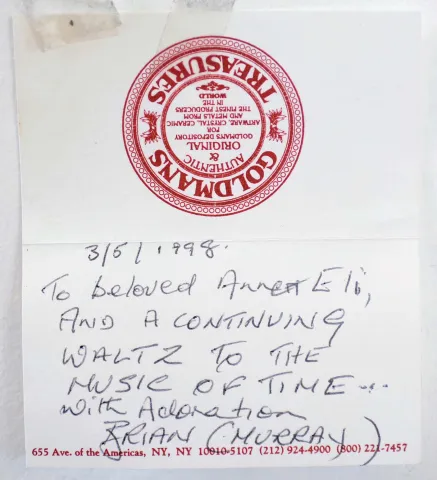 GOLDMANS TREASURES
AUTHENTIC
&
ORIGINAL
GOLDMAN'S DEPOSITORY
FOR
ARTWARE, CRYSTAL, CERAMIC
AND METALS FROM
THE FINEST PRODUCERS
IN THE
WORLD
3/5/1998.
To beloved Ann & Eli,
AND A CONTINUING
WALTZ TO THE
MUSIC OF TIME...
with Adoration
BRIAN (MURRAY)
655 Ave. of the Americas, NY, NY 10010-5107 (212) 924-4900 (800) 221-7457